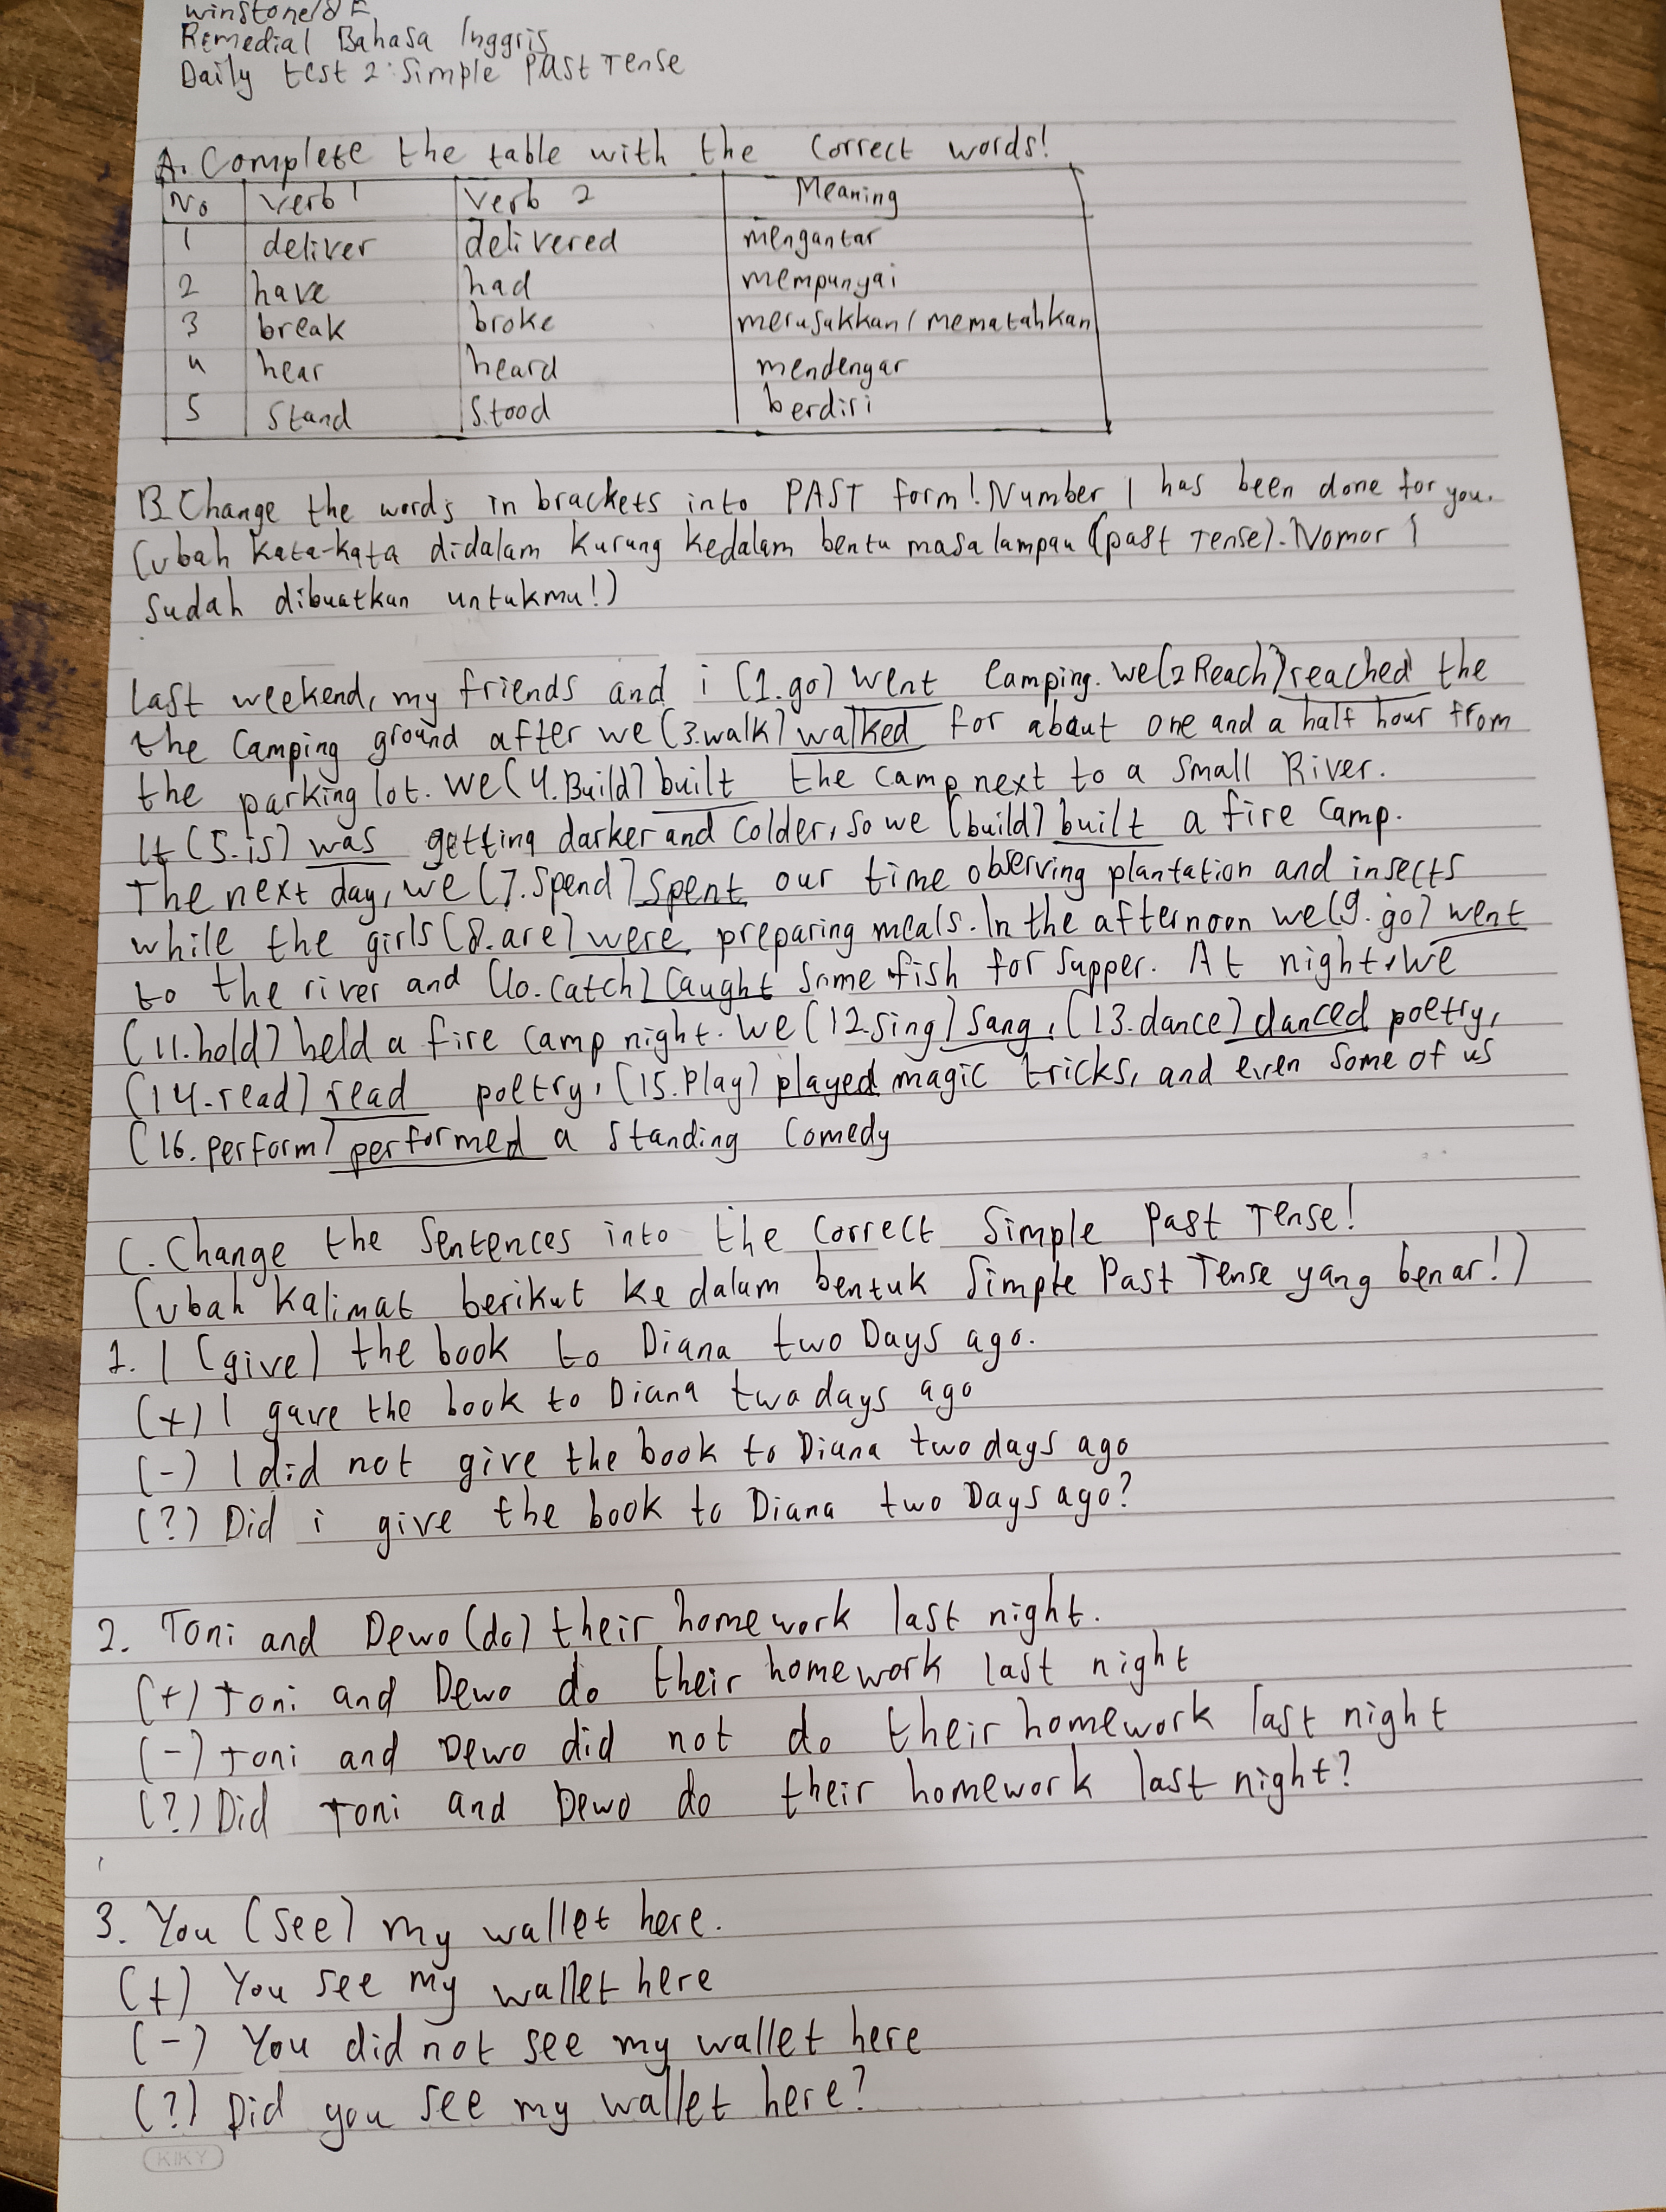 Winstone/8E
Remedial Bahasa Inggris
Daily test 2: Simple Past Tense
A. Complete the table with the correct words!
No Verb 1 Verb 2 Meaning
1 deliver delivered mengantar
2 have had mempunyai
3 break broke merusakkan / mematahkan
4 hear heard mendengar
5 Stand Stood berdiri
B. Change the words in brackets into PAST form! Number 1 has been done for you.
(ubah kata-kata didalam kurung kedalam bentu masa lampau (past Tense). Nomor 1
Sudah dibuatkan untukmu!)
Last weekend, my friends and i (1.go) went Camping. We (2 Reach) reached the
the Camping ground after we (3.walk) walked for about one and a half hour from
the parking lot. We (4.Build) built the camp next to a small River.
It (5.is) was getting darker and colder, so we (build) built a fire camp.
The next day, we (7.Spend) Spent our time observing plantation and insects
while the girls (8.are) were preparing meals. In the afternoon we (9.go) went
to the river and (10.catch) Caught Some fish for supper. At night, we
(11.hold) held a fire camp night. We (12.Sing) Sang, (13.dance) danced poetry,
(14.read) read poetry, (15.Play) played magic tricks, and even some of us
(16.perform) performed a Standing Comedy
C. Change the Sentences into the Correct Simple Past Tense!
(ubah kalimat berikut ke dalam bentuk Simple Past Tense yang benar!)
1. I (give) the book to Diana two Days ago.
(+) I gave the book to Diana two days ago
(-) I did not give the book to Diana two days ago
(?) Did i give the book to Diana two Days ago?
2. Toni and Dewo (do) their homework last night.
(+) Toni and Dewo do their homework last night
(-) Toni and Dewo did not do their homework last night
(?) Did Toni and Dewo do their homework last night?
3. You (see) my wallet here.
(+) You see my wallet here
(-) You did not see my wallet here
(?) Did you see my wallet here?
KIKY